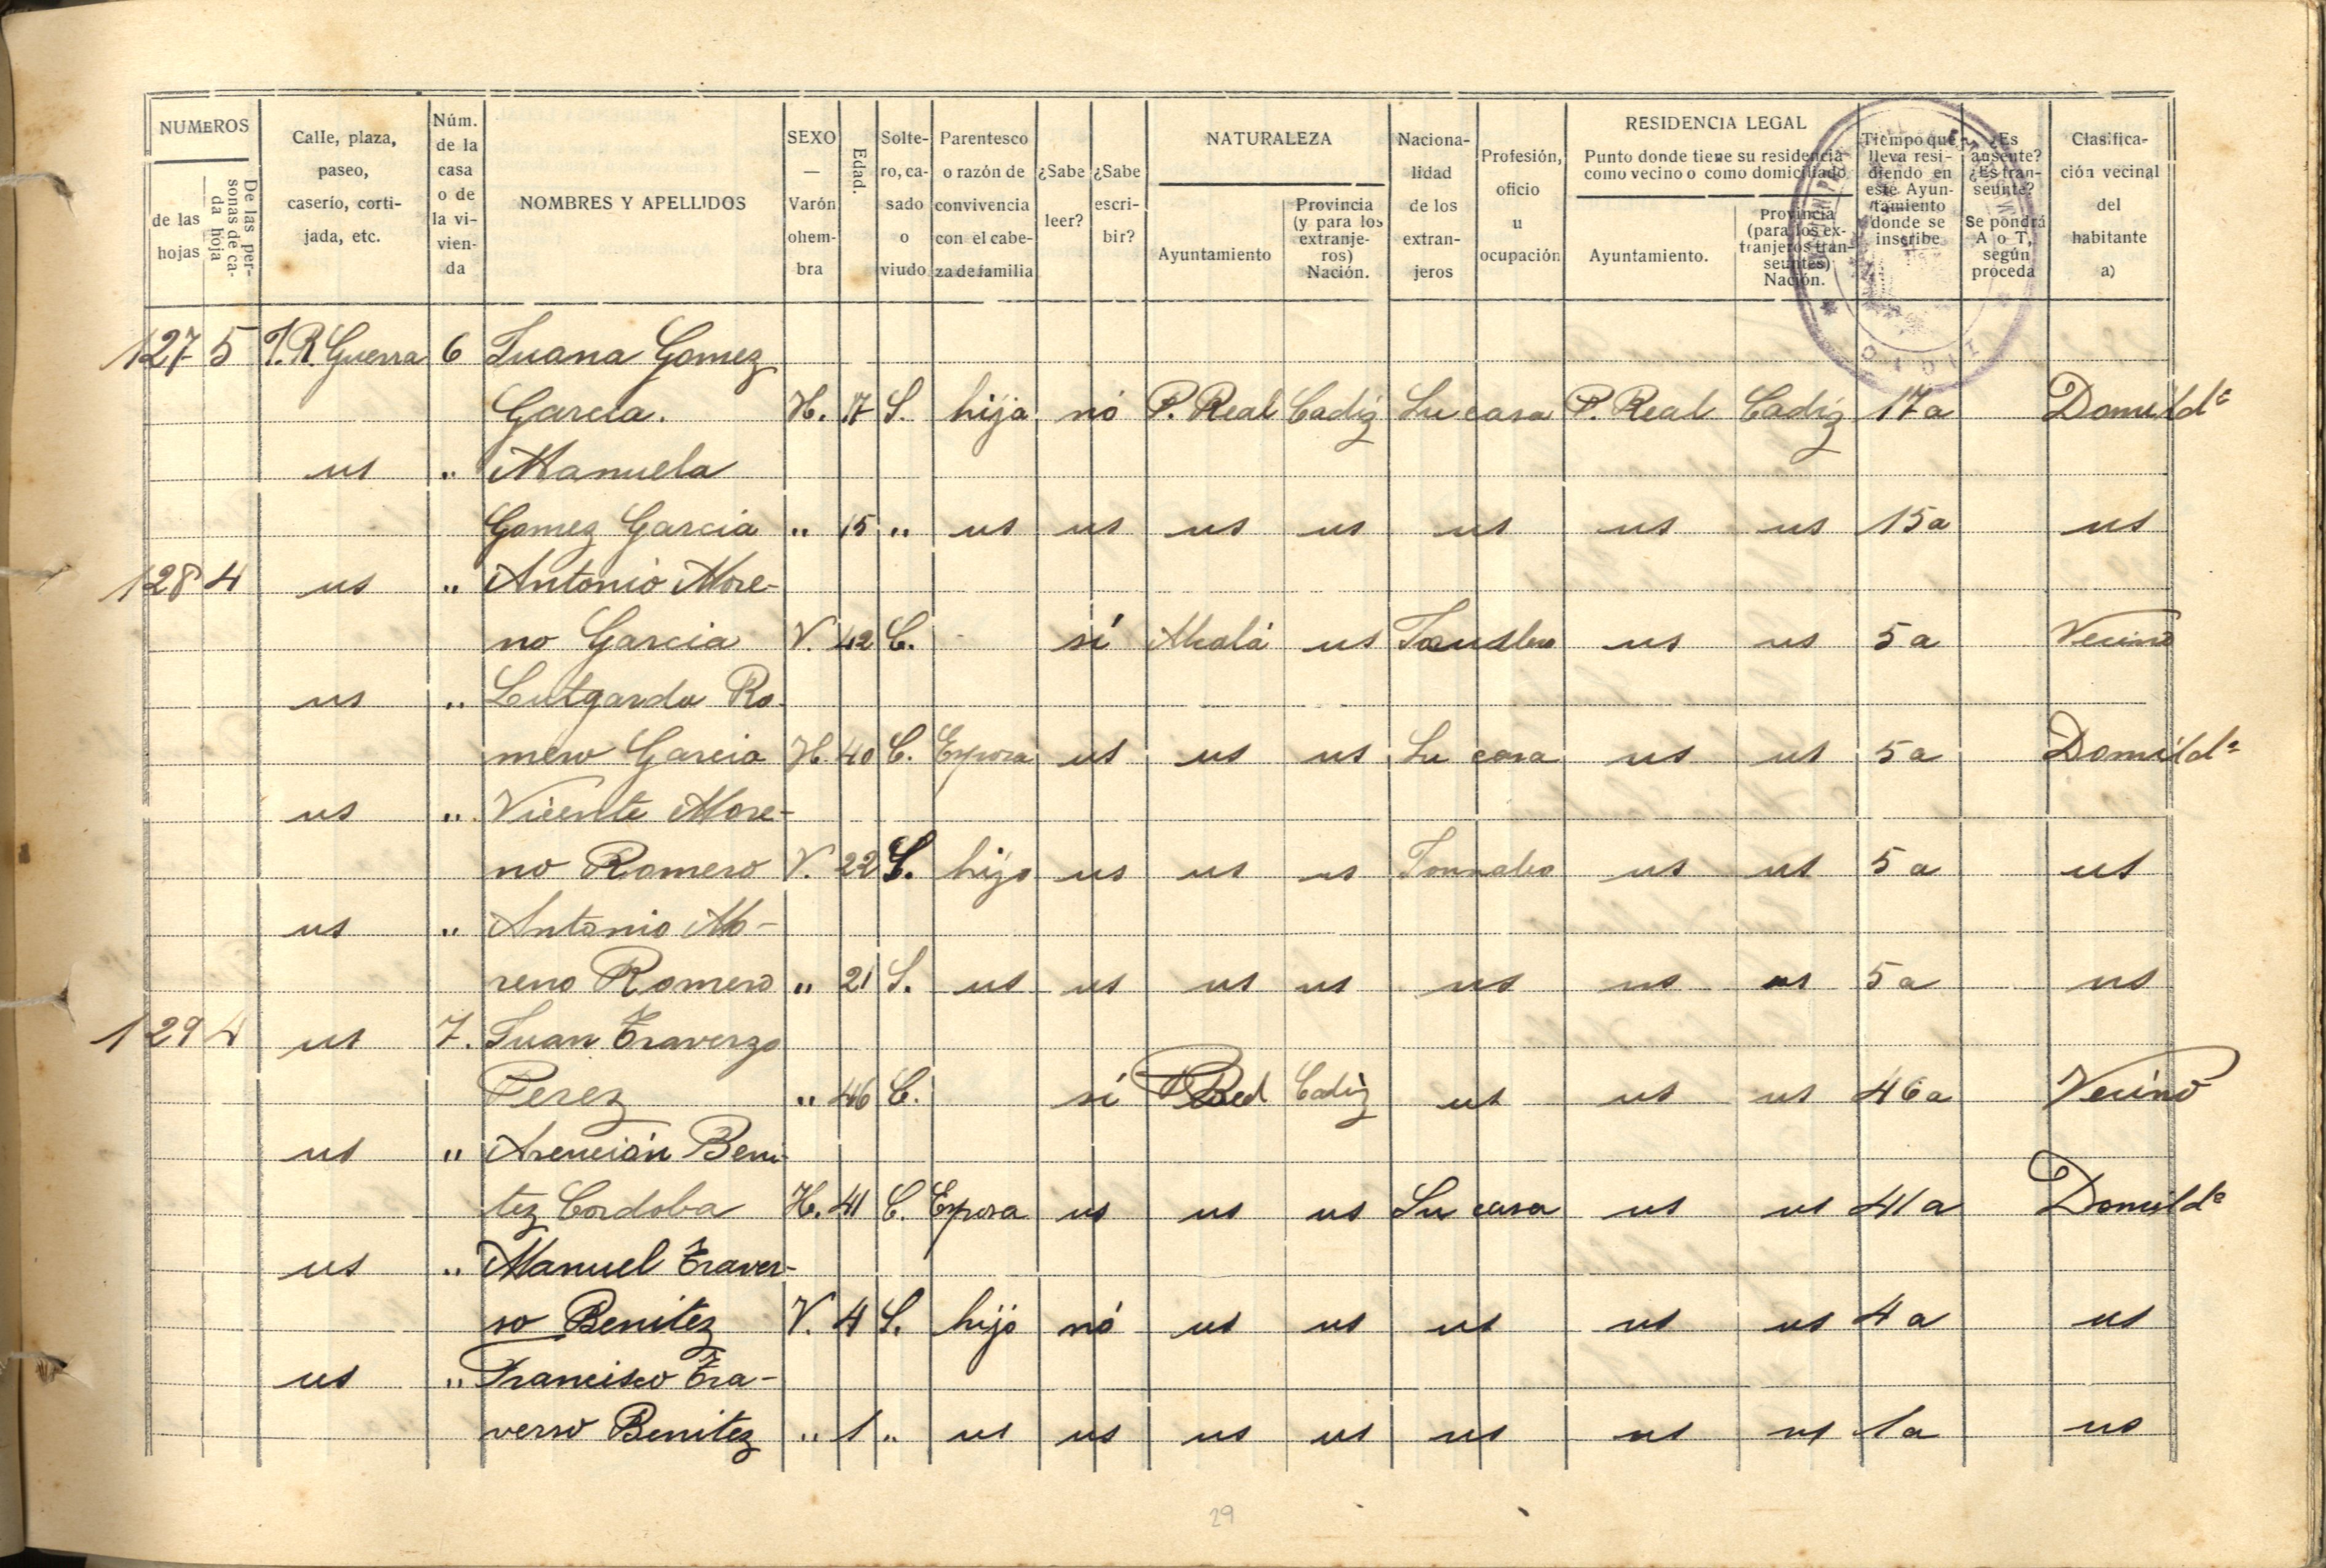 NUMEROS
de las hojas
De las personas de cada hoja
Calle, plaza, paseo, caserío, cortijada, etc.
Núm. de la casa o de la vivienda
NOMBRES Y APELLIDOS
SEXO — Varón o hembra
Edad.
Soltero, casado o viudo
Parentesco o razón de convivencia con el cabeza de familia
¿Sabe leer?
¿Sabe escribir?
NATURALEZA
Ayuntamiento
Provincia (y para los extranjeros) Nación.
Nacionalidad de los extranjeros
Profesión, oficio u ocupación
RESIDENCIA LEGAL
Punto donde tiene su residencia como vecino o como domiciliado
Ayuntamiento.
Provincia (para los extranjeros transeuntes) Nación.
Tiempo que lleva residiendo en este Ayuntamiento donde se inscribe
¿Es ausente? ¿Es transeunte? Se pondrá A o T, según proceda
Clasificación vecinal del habitante a)
127 5 T.R. Guerra 6 Juana Gomez
Garcia. H. 17 S. hija nó P. Real Cadiz Su casa P. Real Cadiz 17a Domildª
us " Manuela
Gomez Garcia " 15 " us us us us us us us 15a us
128 4 us " Antonio More-
no Garcia V. 42 C. sí Alcalá us us us 5a Vecino
us " Lutgarda Ro-
mero Garcia H. 40 C. Esposa us us us Su casa us us 5a Domildª
us " Vicente More-
no Romero V. 22 S. hijo us us us us us 5a us
us " Antonio Mo-
reno Romero " 21 S. us us us us us us us 5a us
129 4 us 7. Juan Traverzo
Perez " 46 C. sí P Real Cadiz us us us 46a Vecino
us " Asención Beni-
tez Cordoba H. 41 C. Esposa us us us Su casa us us 41a Domildª
us " Manuel Traver-
so Benitez V. 4 S. hijo nó us us us us us 4a us
us " Francisco Tra-
verso Benitez " 1 " us us us us us us us 1a us
29